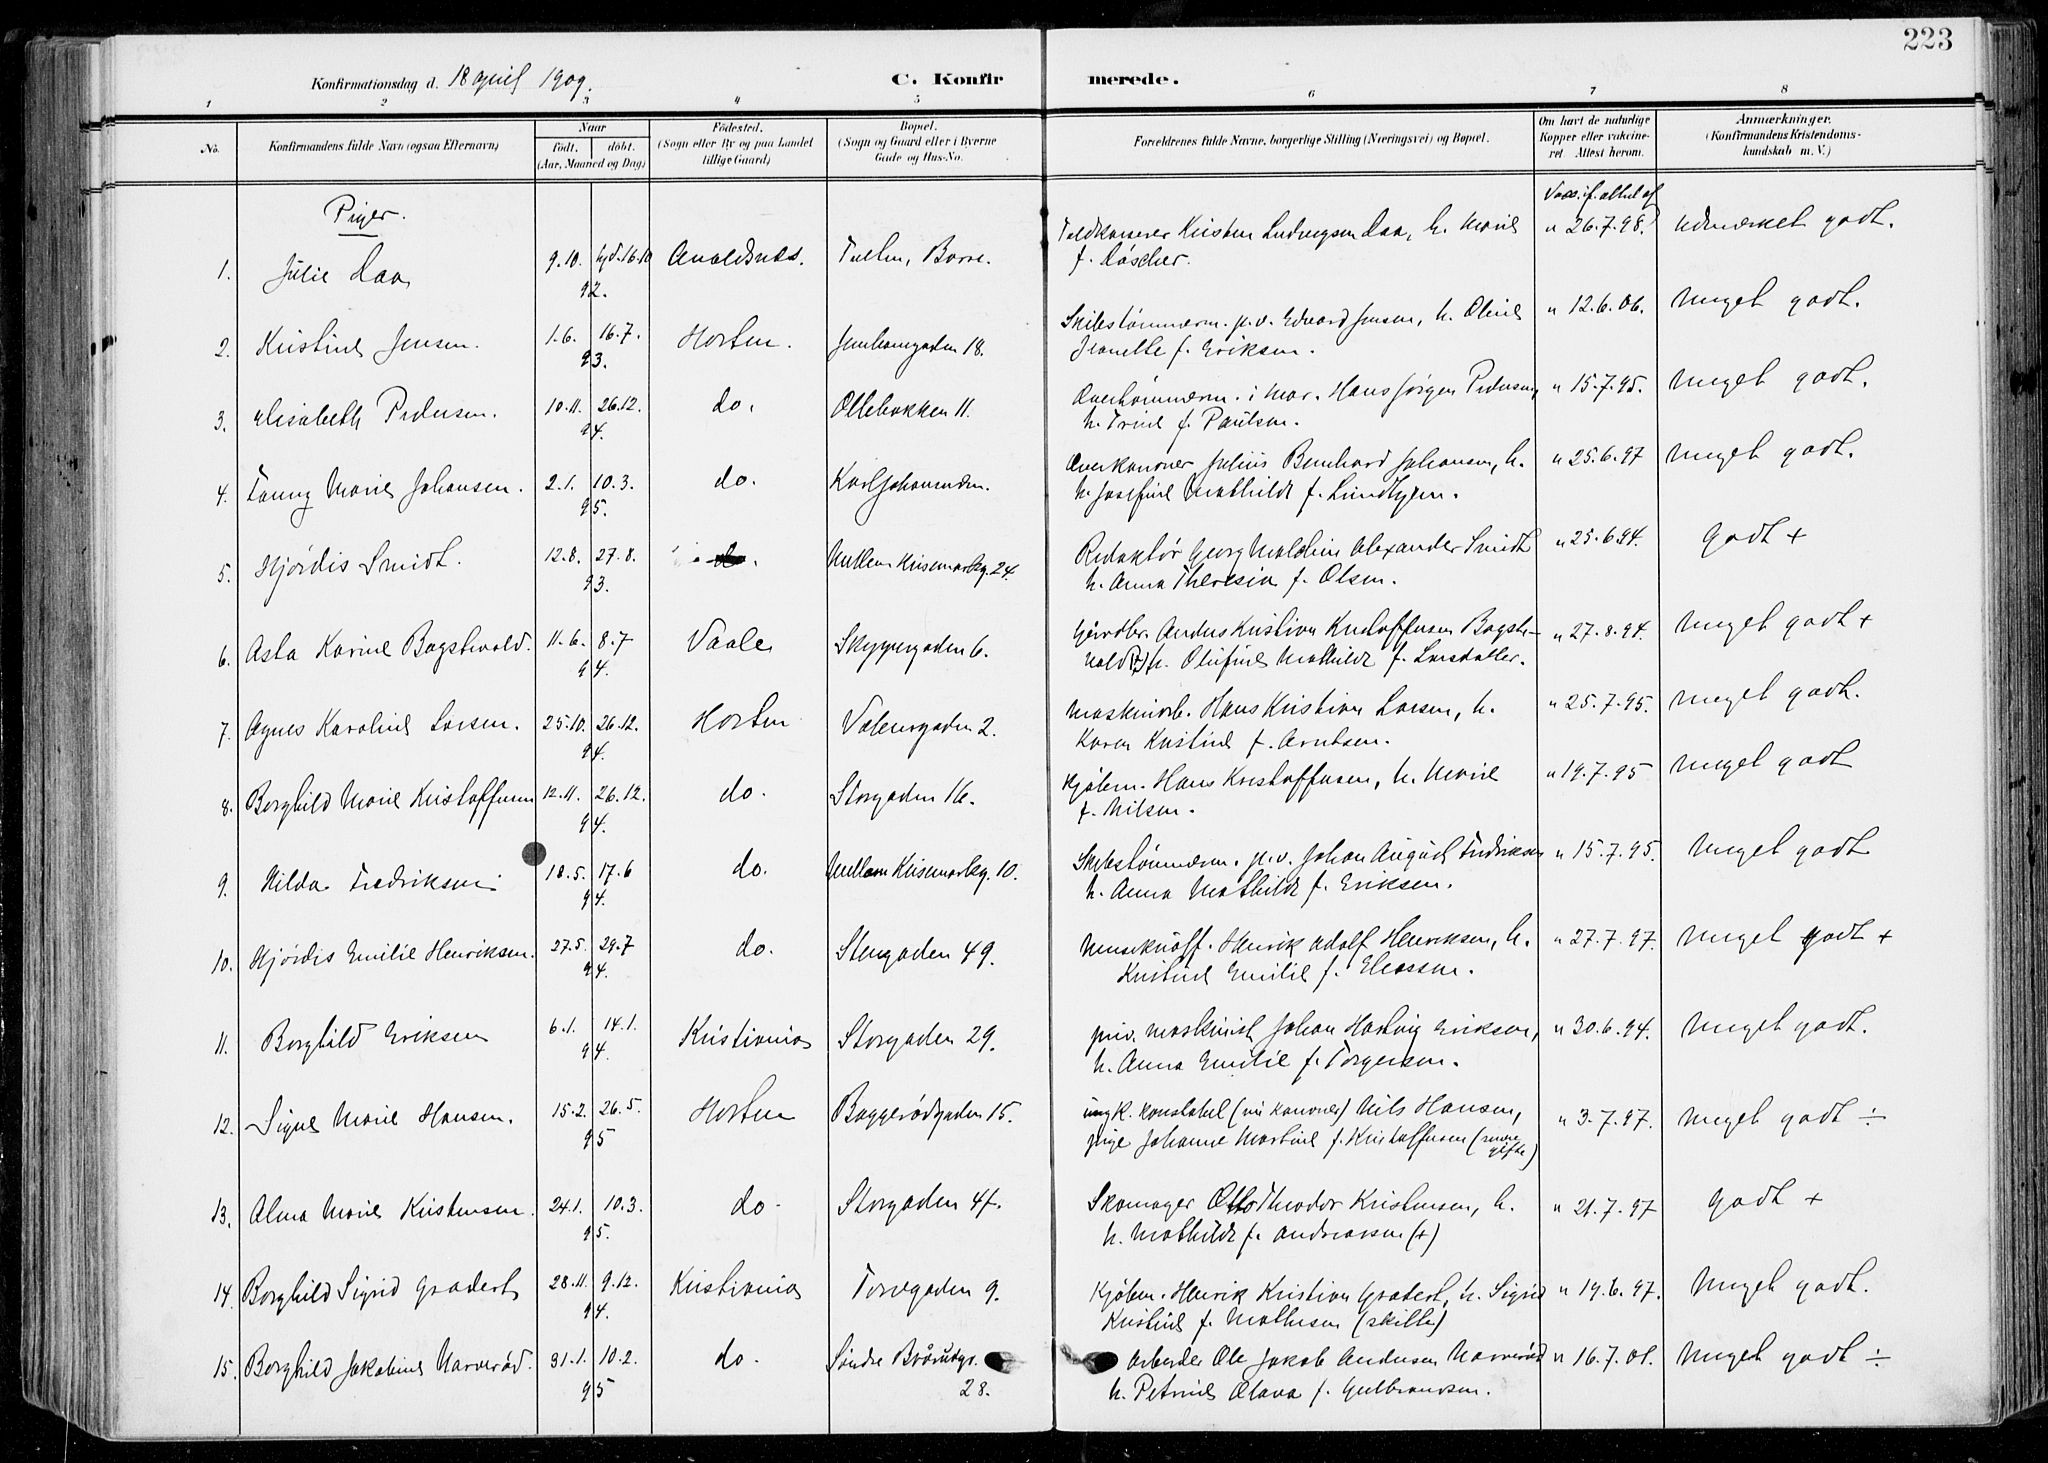 223
Konfirmationsdag d. 18 april 1909.
C. Konfirmerede.
1 2 3 4 5 6 7 8
No. Konfirmandens fulde Navn (ogsaa Efternavn) Naar født. døbt. (Aar, Maaned og Dag) Fødested. (Sogn eller By og paa Landet tillige Gaard) Bopæl. (Sogn og Gaard eller i Byerne Gade og Hus-No. Forældrenes fulde Navne, borgerlige Stilling (Næringsvei) og Bopæl. Om havt de naturlige Kopper eller vakcineret. Attest herom. Anmærkninger. (Konfirmandens Kristendomskundskab m. V.)
Piger.
Vacc. if. attest af
1. Julie Daa 9.10. hjd. 16.10 92. Avaldsnes. Borre. Toldkasserer Kristen Ludvigsen Daa, h. Marie " 26.7.98. udmærket godt.
f. Løscher.
2. Kristine Jensen. 1.6. 16.7. 93. Horten. Jernbanegaden 18. Skibstømmerm. p.v. Edvard Jensen, h. Oline " 12.6.06. Meget godt.
Jeanette f. Eriksen.
3. Elisabeth Pedersen. 10.11. 26.12. 94. do. Ollebakken 11. Overtømmerm. i Mar. Hans Jørgen Pedersen, " 15.7.95. Meget godt.
h. Trine f. Paulsen.
4. Fanny Marie Johansen. 2.1. 10.3. 95. do. Karljohansvern. Overkanoner Julius Bernhard Johansen, h. " 25.6.97 Meget godt.
h. Josefine Mathilde f. Lindtgen.
5. Hjørdis Smidt. 12.8. 27.8. 93. do. Mellem Kisemarkg. 24. Redaktør Georg Alexander Smidt " 25.6.94. godt +
h. Anna Theresia f. Olsen.
6. Asta Karine Bagstevold. 11.6. 8.7 94. Vaale Skippergaden 6. Gaardbr. Anders Kristian Kristoffersen Bagste- " 27.8.94. Meget godt +
vold (+) h. Olufine Mathilde f. Larsdatter.
7. Agnes Karoline Larsen. 25.10. 26.12. 94. Horten Valeurgaden 2. Maskinarb. Hans Kristian Larsen, h. " 25.7.95. Meget godt.
Karen Kristine f. Arntsen.
8. Borghild Marie Kristoffersen 12.11. 26.12. 94. do. Storgaden 16. Kjøbm. Hans Kristoffersen, h. Marie " 19.7.95 Meget godt
f. Nilsen.
9. Hilda Fredriksen 18.5. 17.6 94. do. Mellem Kisemarkg. 10. Skibstømmerm. p.v. Johan August Fredriksen " 15.7.95. Meget godt
h. Anna Mathilde f. Eriksen.
10. Hjørdis Emilie Henriksen. 27.5. 29.7 94. do. Stengaden 49. Minørunderoff. Henrik Adolf Henriksen, h. " 27.7.97. Meget godt +
Kristine Emilie f. Eliassen.
11. Borghild Eriksen 6.1. 14.1. 94. Kristiania Storgaden 29. priv. maskinist Johan Hartvig Eriksen, " 30.6.94. Meget godt.
h. Anna Emilie f. Torgersen.
12. Signe Marie Hansen. 15.2. 26.5. 95 Horten Baggerødgaden 15. ungk. konstabel (nu kanoner) Nils Hansen, " 3.7.97. Meget godt ÷
pige Johanne Martine f. Kristoffersen (senere gifte)
13. Alma Marie Kristensen. 24.1. 10.3. 95. do. Storgaden 47. Skomager Otto Theodor Kristensen, h. " 21.7.97 godt +
h. Mathilde f. Andreassen (+)
14. Borghild Sigrid Gradert 28.11. 9.12. 94. Kristiania Torvegaden 9. Kjøbm. Henrik Kristian Gradert, h. Sigrid " 19.6.97. Meget godt.
Kristine f. Mathisen (skilte)
15. Borghild Jakobine Narverød. 31.1. 10.2. 95 do. Søndre Braarudgt. 28. Arbeider Ole Jakob Andersen Narverød " 16.7.01. Meget godt ÷
h. Petrine Olava f. Gulbrandsen.